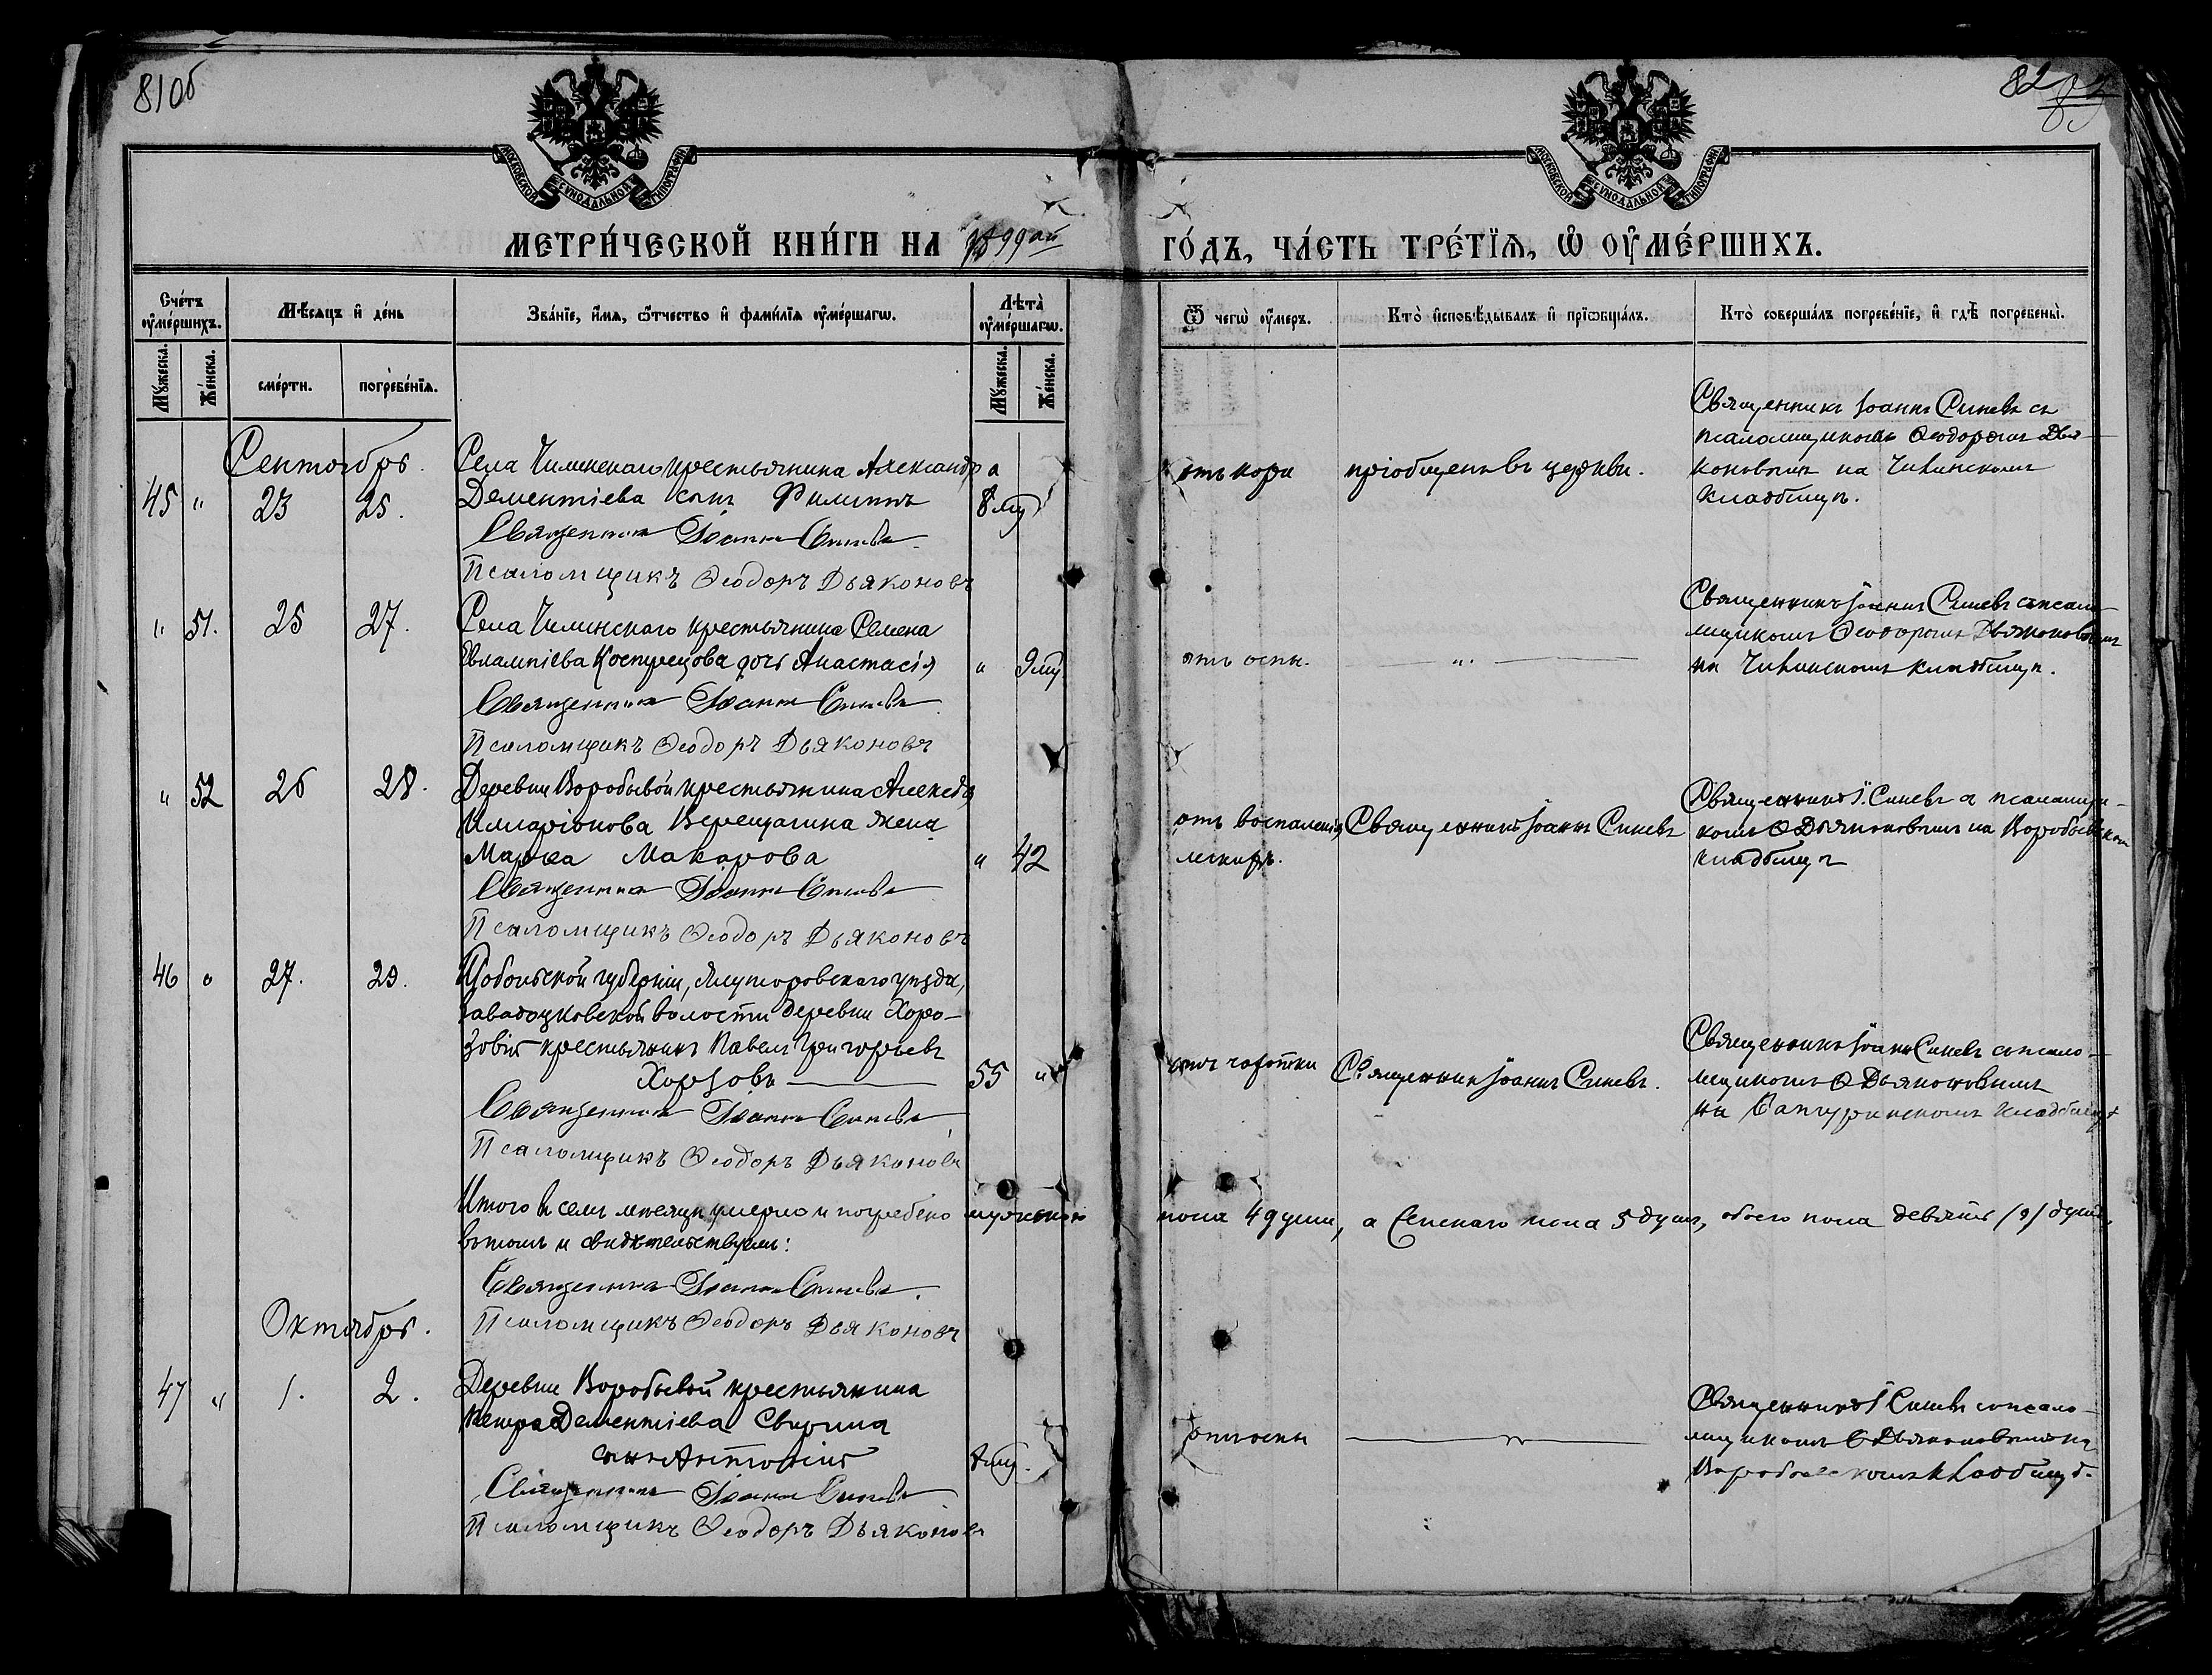 81об
82
МОСКОВСКОЙ СѴНОДАЛЬНОЙ ТИПОГРАФІИ
МОСКОВСКОЙ СѴНОДАЛЬНОЙ ТИПОГРАФІИ
МЕТРИ́ЧЕСКОЙ КНИ́ГИ НА 1899ый ГО́ДЪ, ЧА́СТЬ ТРЕ́ТЇѦ, Ѽ ОУ҆МЕ́РШИХЪ.
Счетъ оумершихъ.
Мѣсяцъ и день
Званіе, имя, отчество и фамилія оумершагѡ.
Лѣта оумершагѡ.
Ѿ чегѡ оумеръ.
Кто исповѣдывалъ и пріѡбщалъ.
Кто совершалъ погребеніе, и гдѣ погребены.
Мужеска.
Женска.
смерти.
погребенія.
Мужеска.
Женска.
Сентябрь.
45 " 23 25.
Села Чилинскаго крестьянина Александра
Дементіева сынъ Филиппъ
Священникъ Іоаннъ Синевъ
Псаломщикъ Ѳеодоръ Дьяконовъ
отъ кори
пріобщенъ въ церкви.
Священникъ Іоаннъ Синевъ съ
псаломщикомъ Ѳеодоромъ Дья-
коновымъ на Чилинскомъ
кладбищѣ.
" 51. 25 27.
Села Чилинскаго крестьянина Семена
Евлампіева дочь Анастасія
Священникъ Іоаннъ Синевъ
Псаломщикъ Ѳеодоръ Дьяконовъ
отъ оспы.
"
Священникъ Іоаннъ Синевъ съ псалом-
щикомъ Ѳеодоромъ Дьяконовымъ
на Чилинскомъ кладбищѣ.
" 52 26 28.
Деревни Воробьевой крестьянина Алексѣя
Илларіонова Верещагина жена
Марѳа Макарова
" 42
Священникъ Іоаннъ Синевъ
Псаломщикъ Ѳеодоръ Дьяконовъ
отъ воспаленія
легкихъ.
Священникъ Іоаннъ Синевъ
Священникъ І. Синевъ съ псаломщи-
комъ Ѳ Дьяконовымъ на Воробьевском
кладбищѣ
46 " 27. 29.
Тобольской губерніи, Ялуторовскаго уѣзда,
Заводоуковской волости деревни
крестьянинъ Павелъ Григорьевъ
55 "
Священникъ Іоаннъ Синевъ
Псаломщикъ Ѳеодоръ Дьяконовъ
отъ чахотки
Священникъ Іоаннъ Синевъ.
Священникъ Іоаннъ Синевъ съ псалом-
щикомъ Ѳ Дьяконовымъ
на кладбищѣ
Итого въ семъ мѣсяцѣ умерло и погребено мужскаго пола 4 души, а женскаго пола 5 душъ, обоего пола девять /9/ душъ,
въ томъ и свидѣтельствуемъ:
Священникъ Іоаннъ Синевъ.
Псаломщикъ Ѳеодоръ Дьяконовъ
Октябрь.
47 " 1. 2.
Деревни Воробьевой крестьянина
Петра Дементіева
сынъ
Священникъ Іоаннъ Синевъ
Псаломщикъ Ѳеодоръ Дьяконовъ
отъ оспы
"
Священникъ І Синевъ съ псалом-
щикомъ Ѳ Дьяконовымъ на
Воробьевскомъ кладбищѣ.